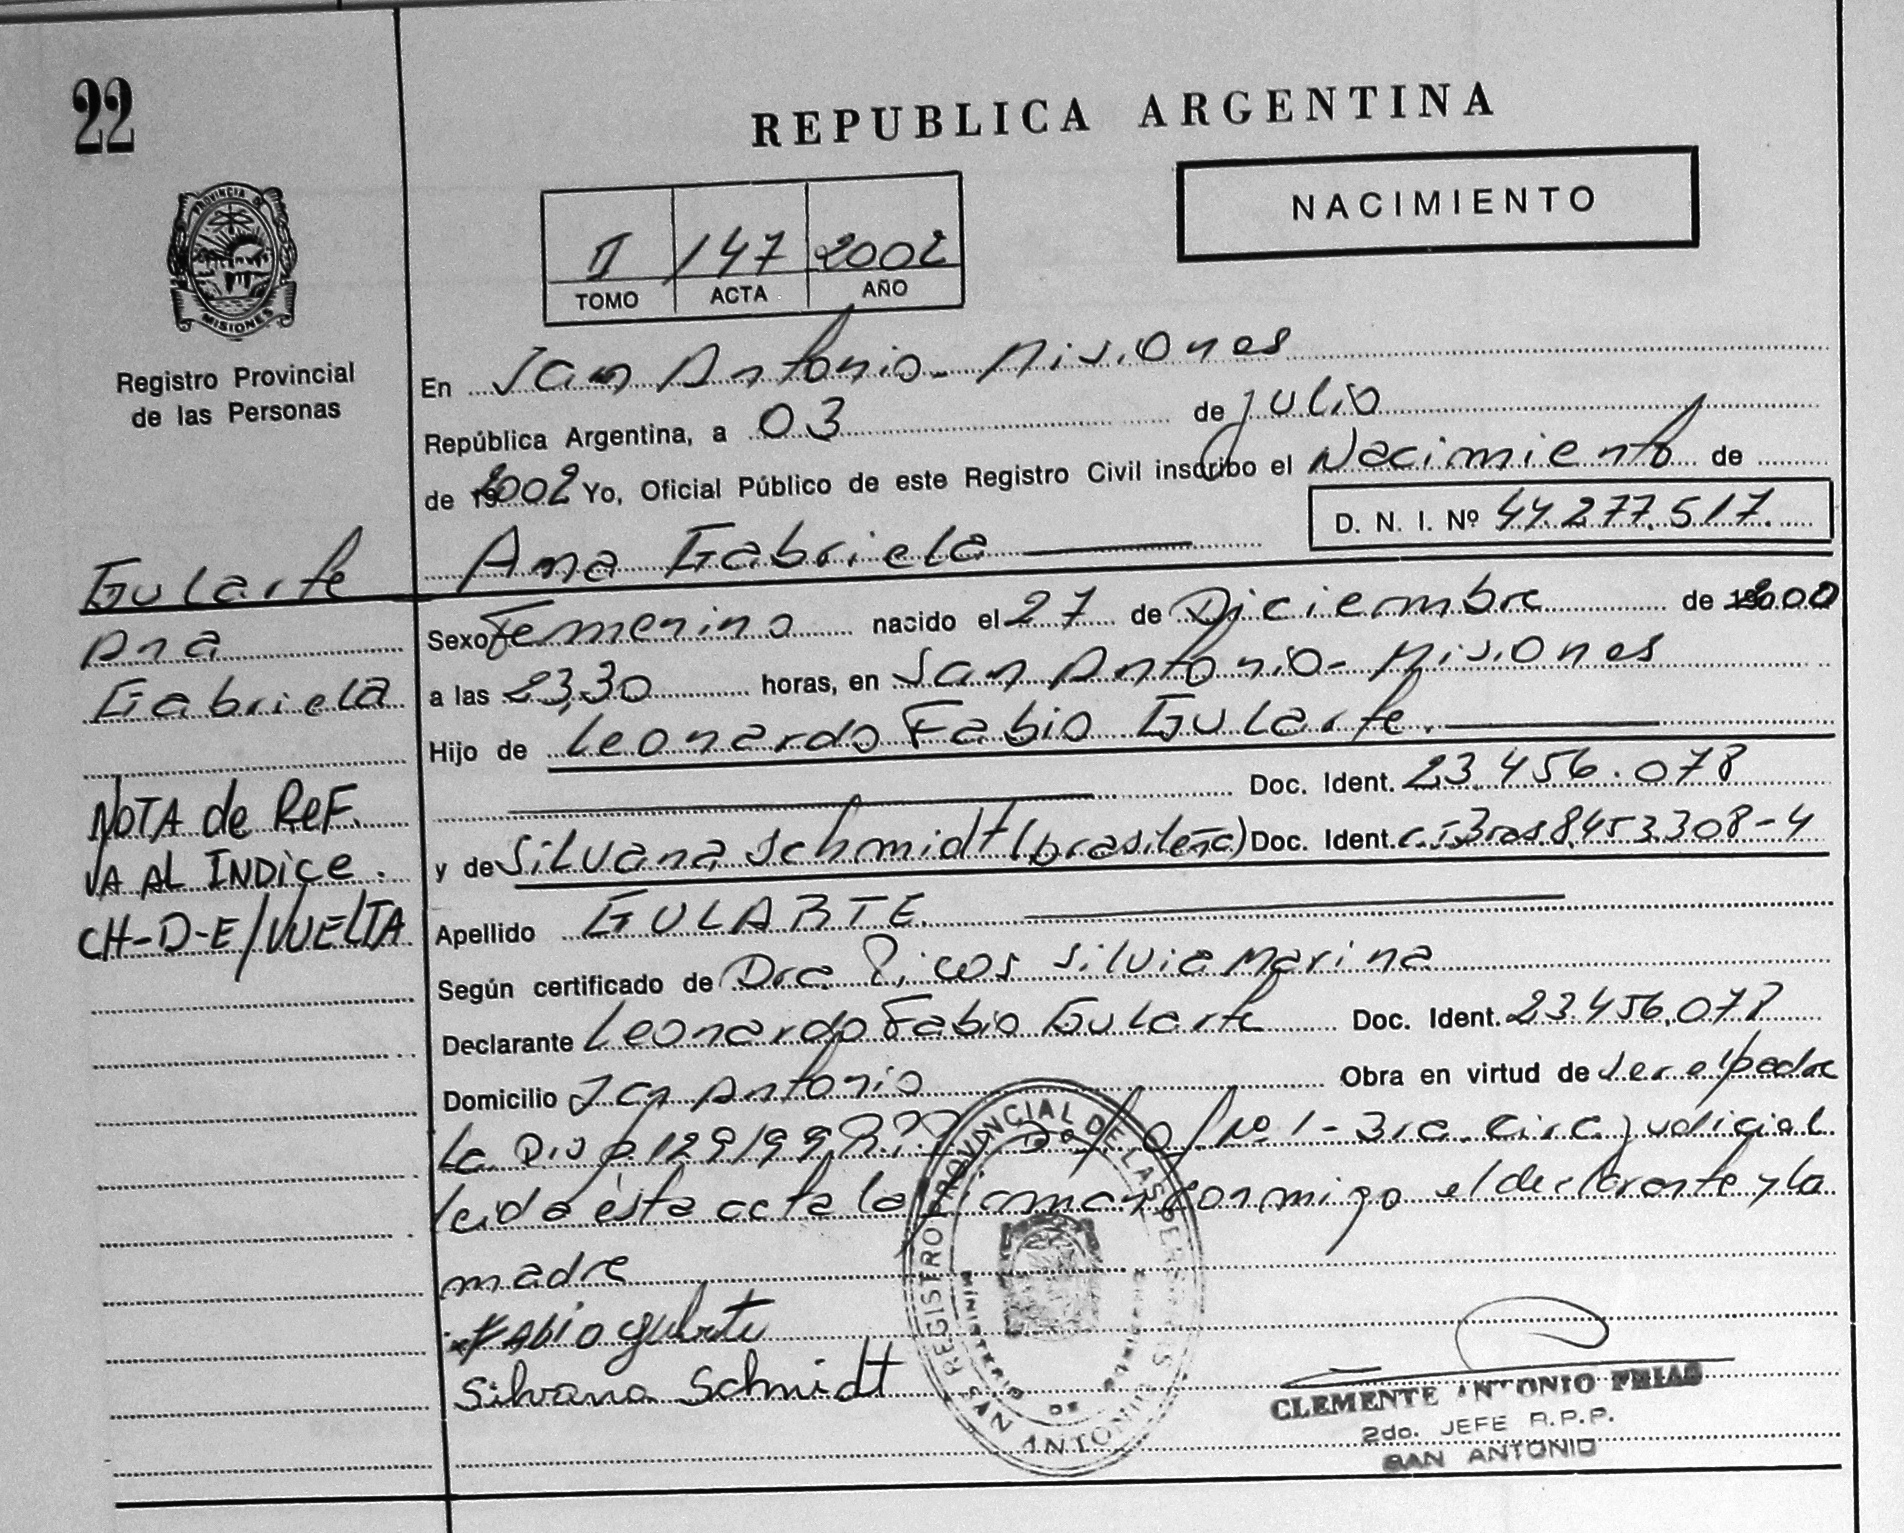 22
REPUBLICA ARGENTINA
NACIMIENTO
II 147 2002
TOMO ACTA AÑO
PROVINCIA DE
MISIONES
Registro Provincial
de las Personas
En San Antonio - Misiones
República Argentina, a 03 de julio
de 2002 Yo, Oficial Público de este Registro Civil inscribo el Nacimiento de
D. N. I. Nº 44.277.517.
Ana Gabriela
Gularte
Ana
Gabriela
NOTA de ReF.
VA AL INDICE.
CH-D-E/VUELTA
Sexo Femenino nacido el 27 de Diciembre de 2000
a las 23,30 horas, en San Antonio - Misiones
Hijo de Leonardo Fabio Gularte.
Doc. Ident. 23.456.078
y de Silvana Schmidt (brasileña) Doc. Ident. C.I Bras. 8.453.308-4
Apellido GULARTE.
Según certificado de Dra. Picos Silvia Marina
Declarante Leonardo Fabio Gularte Doc. Ident. 23.456.078
Domicilio San Antonio Obra en virtud de ser el padre
La Disp. 129/99 Nº 1 - 3ra. Circ. judicial
leida ésta acta la firman conmigo el declarante y la
madre
Fabio Gularte
Silvana Schmidt
REGISTRO PROVINCIAL DE LAS PERSONAS
MINISTERIO DE
SAN ANTONIO
CLEMENTE ANTONIO FRIAS
2do. JEFE R.P.P.
SAN ANTONIO